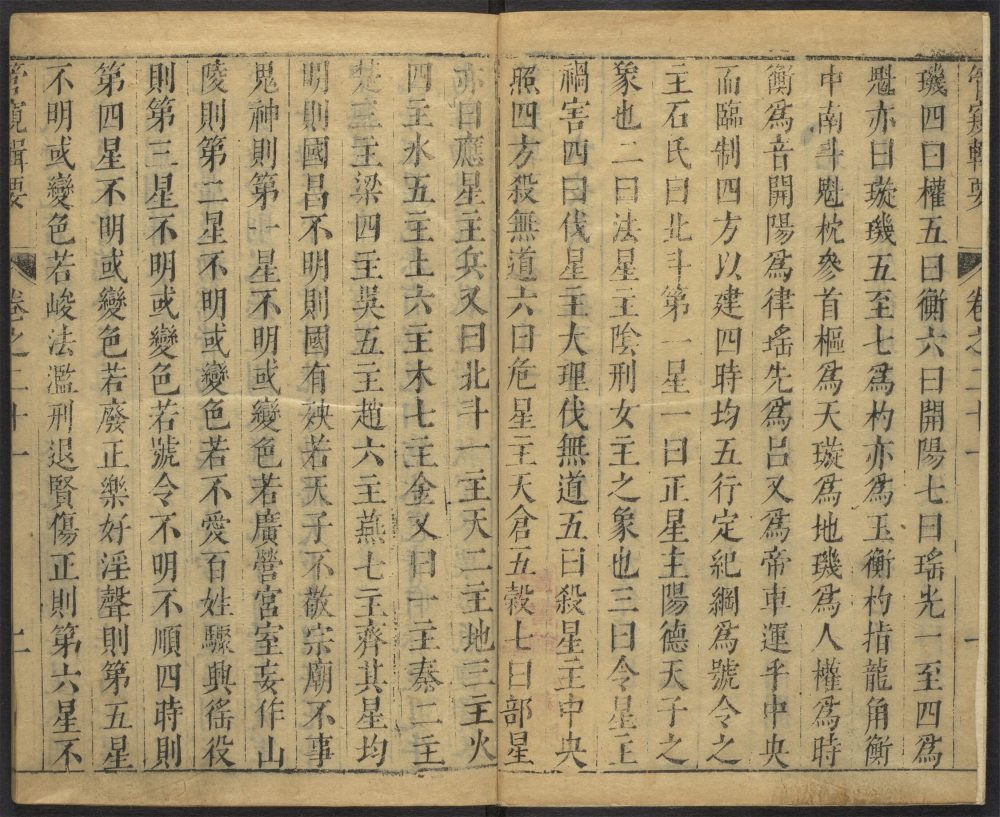 管窺輯要 卷之二十一 一
璣四曰權五曰衡六曰開陽七曰瑤光一至四爲
魁亦曰璇璣五至七爲杓亦爲玉衡杓指龍角衡
中南斗魁枕參首樞爲天璇爲地璣爲人權爲時
衡爲音開陽爲律瑤光爲呂又爲帝車運乎中央
而臨制四方以建四時均五行定紀綱爲號令之
主石氏曰北斗第一星一曰正星主陽德天子之
象也二曰法星主陰刑女主之象也三曰令星主
禍害四曰伐星主大理伐無道五曰殺星主中央
照四方殺無道六曰危星主天倉五穀七曰部星
亦曰應星主兵又曰北斗一主天二主地三主火
四主水五主土六主木七主金又曰一主秦二主
楚三主梁四主吳五主趙六主燕七主齊其星均
明則國昌不明則國有殃若天子不敬宗廟不事
鬼神則第一星不明或變色若廣營宮室妄作山
陵則第二星不明或變色若不愛百姓驟興徭役
則第三星不明或變色若號令不明不順四時則
第四星不明或變色若廢正樂好淫聲則第五星
不明或變色若峻法濫刑退賢傷正則第六星不
管窺輯要 卷之二十一 二